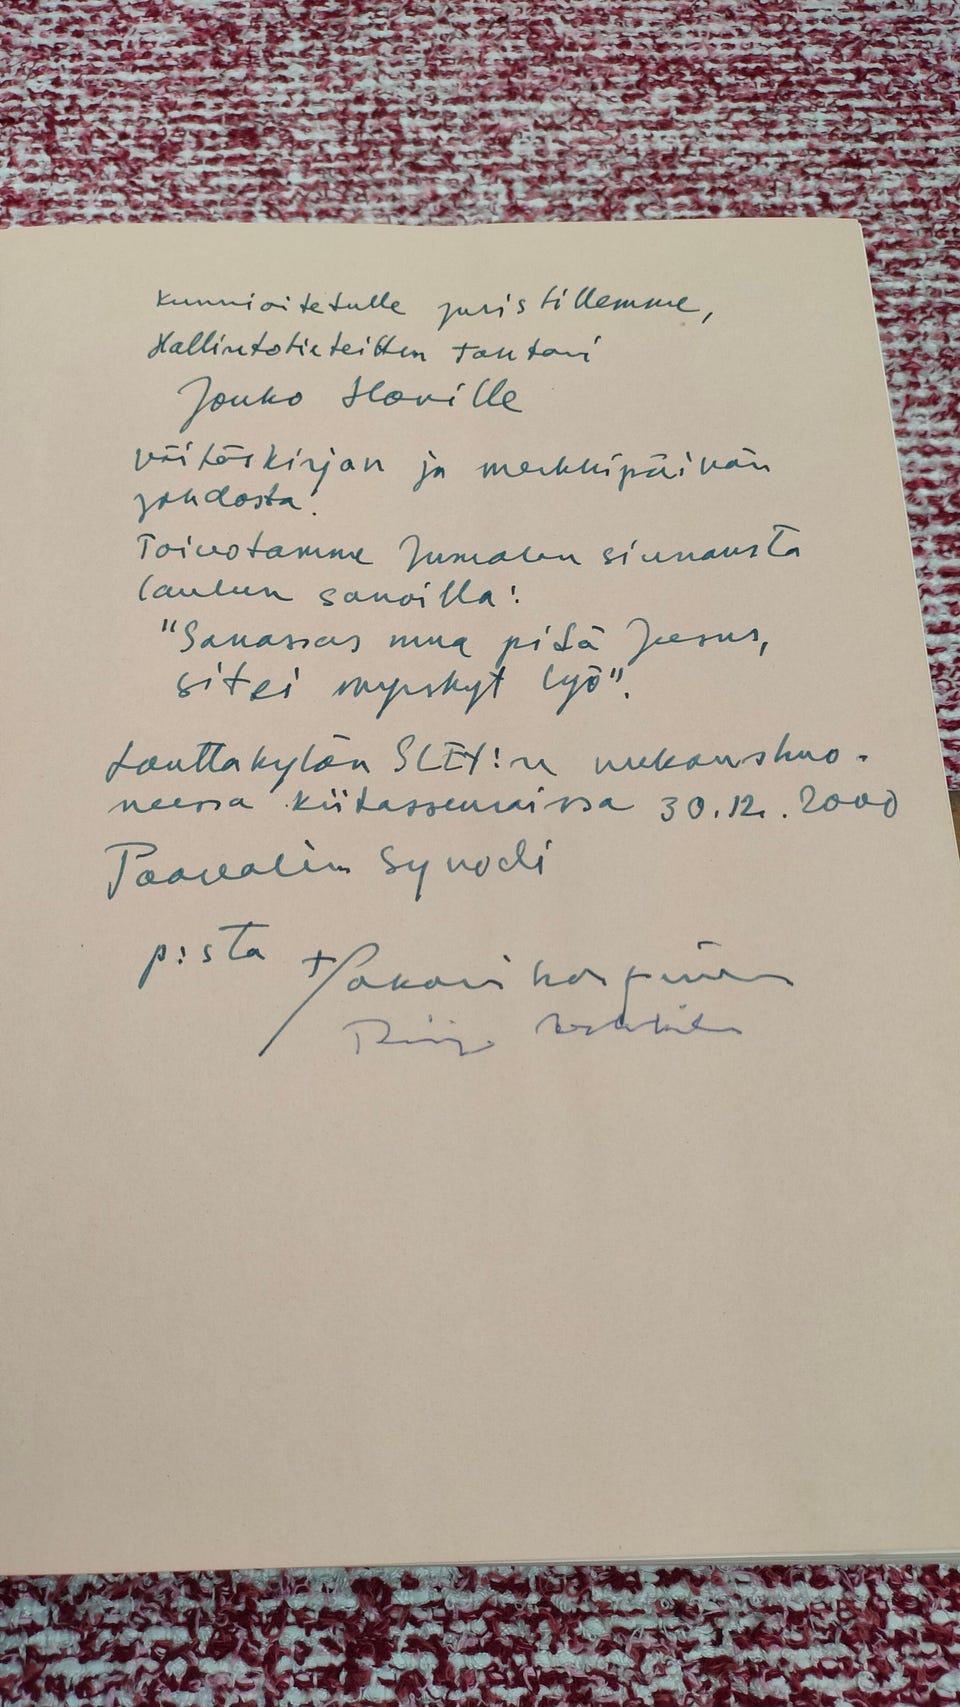 Kunnioitetulle juristillemme,
Hallintotieteitten tohtori
Jouko
väitöskirjan ja merkkipäivän
johdosta!
Toivotamme Jumalan siunausta
laulun sanoilla:
"Sanassas mua pidä Jeesus,
sit ei myrskyt lyö".
Lauttakylän SLEY:n rukoushuo-
neessa kiitosseuroissa 30.12.2000
Paavalin Synodi
p:sta